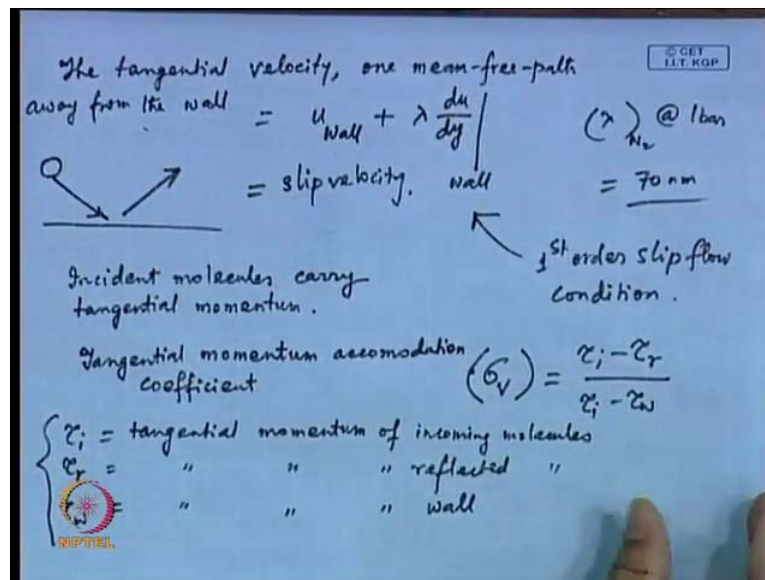 The tangential velocity, one mean-free-path
© CET
I.I.T. KGP
away from the wall = u_wall + λ du/dy |wall
(λ)_N2 @ 1 bar
= slip velocity.
= 70 nm
1st order slip flow
condition.
Incident molecules carry
tangential momentum.
Tangential momentum accomodation
coefficient
(σ_v) = τi - τr / τi - τw
τi = tangential momentum of incoming molecules
τr = " " " reflected "
τw = " " " wall
NPTEL